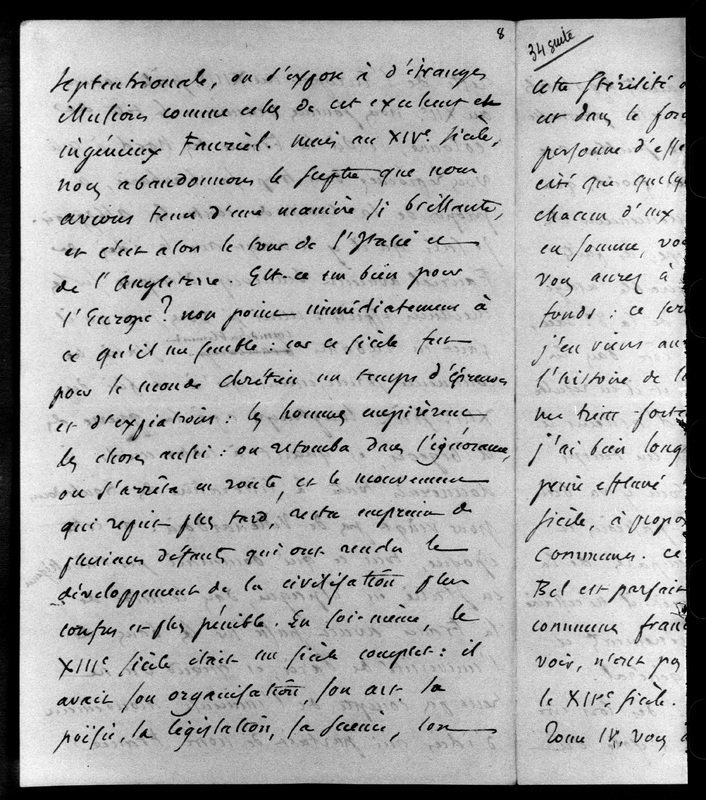 8
septentrionale, on s'expose à d'étranges
illusions comme celles de cet excellent et
ingénieux Fauriel. Mais au XIVe siècle,
nous abandonnons le sceptre que nous
avions tenu d'une manière si brillante,
et c'est alors le tour de l'Italie et
de l'Angleterre. Est-ce un bien pour
l'Europe? non point immédiatement à
ce qu'il me semble: car ce siècle fut
pour le monde chrétien un temps d'épreuves
et d'expiations: les hommes empirèrent
les choses aussi: on retomba dans l'ignorance,
on s'arrêta en route, et le mouvement
qui reprit plus tard, resta empreint de
plusieurs défauts qui ont rendu le
développement de la civilisation plus
confus et plus pénible. En soi-même, le
XIIIe siècle était un siècle complet: il
avait son organisation, son art sa
poësie, sa législation, sa science, son
34 suite
cette stérilité
est dans le
personne d'effe
cité que quelq
chacun d'eux
en somme, vo
vous aurez à
fonds: ce
j'en viens au
l'histoire de l
me
j'ai bien long
peine effleuré
siècle, à propo
communes. ce
Bel est parfait
commune fran
voir, n'ont pas
le XIVe siècle.
Tome IV, vous